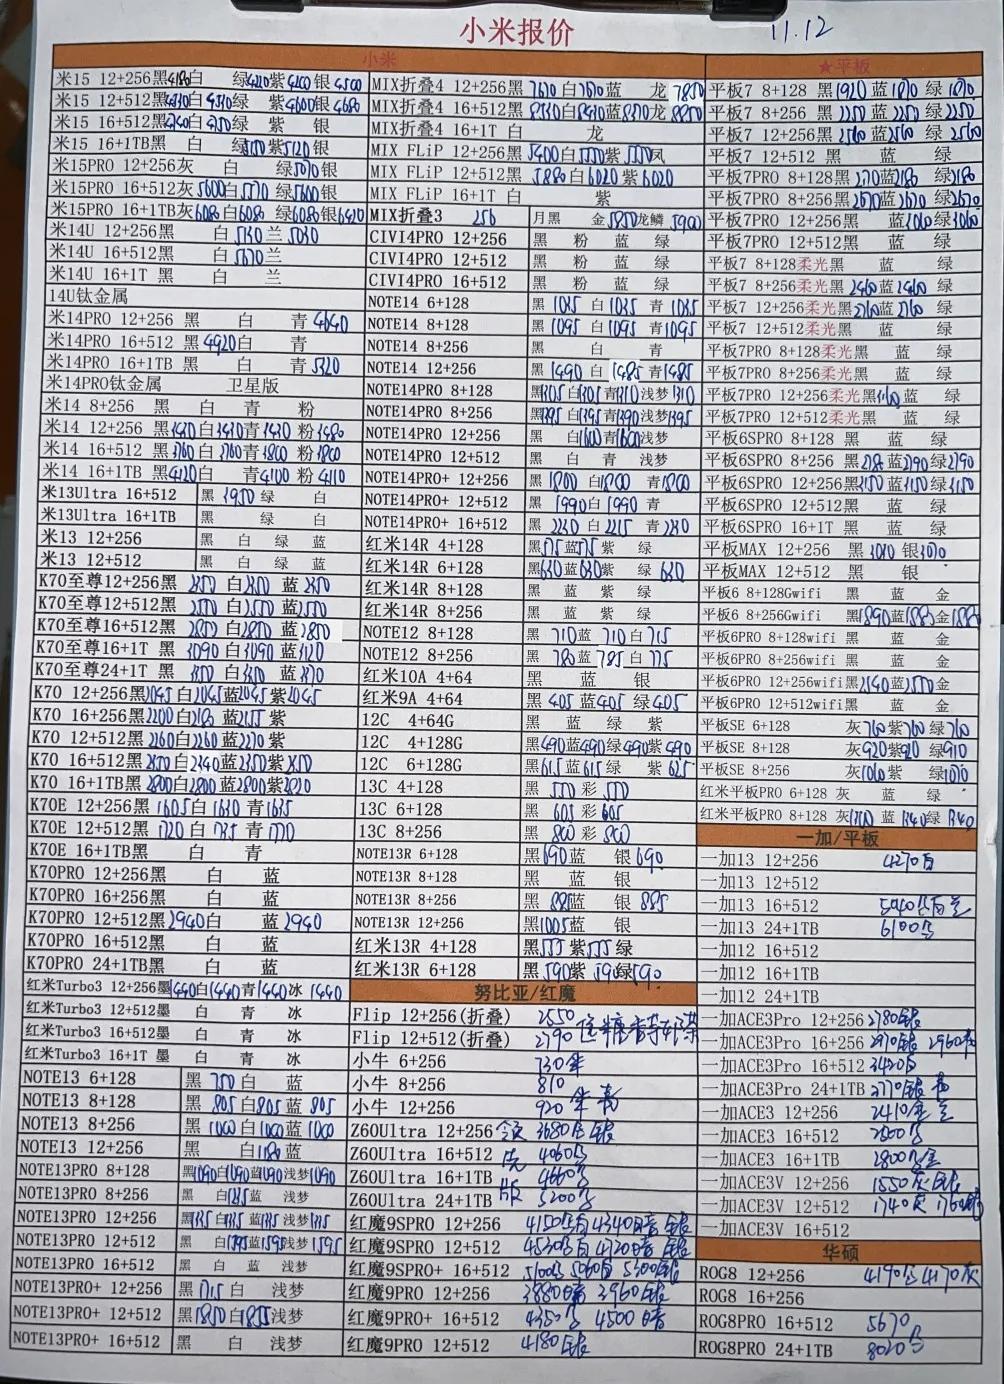 小米报价
11.12
小米
米15 12+256黑4180白 绿4220紫4200银4500
米15 12+512黑 白4510绿 紫4600银4680
米15 16+512黑 白 绿 紫 银
米15 16+1TB黑 白 绿 紫5120银
米15PRO 12+256灰 白 绿5070银
米15PRO 16+512灰5600白5570 绿5600银
米15PRO 16+1TB灰6080白6080 绿6080银6420
米14U 12+256黑 白 兰
米14U 16+512黑 白5670兰
米14U 16+1T 黑 白 兰
14U钛金属
米14PRO 12+256 黑 白 青4640
米14PRO 16+512 黑4920白 青
米14PRO 16+1TB黑 白 青5320
米14PRO钛金属 卫星版
米14 8+256 黑 白 青 粉
米14 12+256 黑 白 青 粉
米14 16+512 黑3760白3760青3800粉3800
米14 16+1TB黑4120白 青4100粉4110
米13Ultra 16+512 黑3950绿 白
米13Ultra 16+1TB 黑 绿 白
米13 12+256 黑 白 绿 蓝
米13 12+512 黑 白 绿 蓝
K70至尊12+256黑 白 蓝
K70至尊12+512黑2550白2550蓝2550
K70至尊16+512黑2850白2850蓝2850
K70至尊16+1T黑3090白3090蓝3120
K70至尊24+1T黑 白 蓝
K70 12+256黑2045白2045蓝2045紫2045
K70 16+256黑2200白 蓝 紫
K70 12+512黑2260白2260蓝2270紫
K70 16+512黑 白2340蓝2350紫
K70 16+1TB黑2800白2800蓝2800紫2820
K70E 12+256黑1605白1630青1635
K70E 12+512黑1720白1735青1770
K70E 16+1TB黑 白 青
K70PRO 12+256黑 白 蓝
K70PRO 16+256黑 白 蓝
K70PRO 12+512黑2940白 蓝2940
K70PRO 16+512黑 白 蓝
K70PRO 24+1TB黑 白 蓝
红米Turbo3 12+256墨1440白1440青1440冰1440
红米Turbo3 12+512墨 白 青 冰
红米Turbo3 16+512墨 白 青 冰
红米Turbo3 16+1T 墨 白 青 冰
NOTE13 6+128 黑750白 蓝
NOTE13 8+128 黑805白805蓝805
NOTE13 8+256 黑1000白1000蓝1000
NOTE13 12+256 黑 白1180蓝
NOTE13PRO 8+128 黑1090白1090蓝1090浅梦1090
NOTE13PRO 8+256 黑 白 蓝 浅梦
NOTE13PRO 12+256 黑 白 蓝 浅梦
NOTE13PRO 12+512 黑 白1595蓝1595浅梦1595
NOTE13PRO 16+512 黑 白 蓝 浅梦
NOTE13PRO+ 12+256 黑1715白 浅梦
NOTE13PRO+ 12+512 黑1850白1855浅梦
NOTE13PRO+ 16+512 黑 白 浅梦
MIX折叠4 12+256黑7670白7670蓝 龙7850
MIX折叠4 16+512黑 白 蓝 龙
MIX折叠4 16+1T 白 龙
MIX FLiP 12+256黑5400白5550紫5550凤
MIX FLiP 12+512黑5880白6020紫6020
MIX FLiP 16+1T 白 紫
MIX折叠3 256 月黑 金5850龙鳞5900
CIVI4PRO 12+256 黑 粉 蓝 绿
CIVI4PRO 12+512 黑 粉 蓝 绿
CIVI4PRO 16+512 黑 粉 蓝 绿
NOTE14 6+128 黑1035白1035青1035
NOTE14 8+128 黑1095白1095青1095
NOTE14 8+256 黑 白 青
NOTE14 12+256 黑1490白1485青1485
NOTE14PRO 8+128 黑1305白1305青1310浅梦1310
NOTE14PRO 8+256 黑1395白1395青1390浅梦1395
NOTE14PRO 12+256 黑 白1600青1600浅梦
NOTE14PRO 12+512 黑 白 青 浅梦
NOTE14PRO+ 12+256 黑1800白1800青1800
NOTE14PRO+ 12+512 黑1990白1990青
NOTE14PRO+ 16+512 黑2230白2215青2230
红米14R 4+128 黑575蓝575紫 绿
红米14R 6+128 黑630蓝630紫 绿630
红米14R 8+128 黑 蓝 紫 绿
红米14R 8+256 黑 蓝 紫 绿
NOTE12 8+128 黑710蓝710白715
NOTE12 8+256 黑780蓝785白775
红米10A 4+64 黑 蓝 银
红米9A 4+64 黑405蓝405绿405
12C 4+64G 黑 蓝 绿 紫
12C 4+128G 黑490蓝490绿490紫490
12C 6+128G 黑615蓝615绿 紫625
13C 4+128 黑550彩550
13C 6+128 黑605彩605
13C 8+256 黑800彩800
NOTE13R 6+128 黑690蓝 银690
NOTE13R 8+128 黑 蓝 银
NOTE13R 8+256 黑 蓝885银885
NOTE13R 12+256 黑1005蓝 银
红米13R 4+128 黑555紫555绿
红米13R 6+128 黑590紫590绿590
努比亚/红魔
Flip 12+256(折叠) 2550
Flip 12+512(折叠) 2790
小牛 6+256 730
小牛 8+256 810
小牛 12+256 920
Z60Ultra 12+256 3680
Z60Ultra 16+512 4060
Z60Ultra 16+1TB 4660
Z60Ultra 24+1TB 5200
红魔9SPRO 12+256 4150 4340
红魔9SPRO 12+512 4530 4720
红魔9SPRO+ 16+512 5100 5060 5300
红魔9PRO 12+256 3880 3960
红魔9PRO+ 16+512 4350 4500
红魔9PRO 12+512 4180银
★平板
平板7 8+128 黑1920蓝 绿
平板7 8+256 黑2250蓝2250绿2250
平板7 12+256 黑2560蓝2560绿2560
平板7 12+512 黑 蓝 绿
平板7PRO 8+128黑 蓝2180绿2180
平板7PRO 8+256黑2670蓝2670绿2670
平板7PRO 12+256黑 蓝3060绿3060
平板7PRO 12+512黑 蓝 绿
平板7 8+128柔光黑 蓝 绿
平板7 8+256柔光黑2460蓝2460绿
平板7 12+256柔光黑2760蓝2760绿
平板7 12+512柔光黑 蓝 绿
平板7PRO 8+128柔光黑 蓝 绿
平板7PRO 8+256柔光黑 蓝 绿
平板7PRO 12+256柔光黑 蓝 绿
平板7PRO 12+512柔光黑 蓝 绿
平板6SPRO 8+128 黑 蓝 绿
平板6SPRO 8+256 黑 蓝2790绿2790
平板6SPRO 12+256黑3150蓝3150绿3150
平板6SPRO 12+512黑 蓝 绿
平板6SPRO 16+1T 黑 蓝 绿
平板MAX 12+256 黑 银3070
平板MAX 12+512 黑 银
平板6 8+128Gwifi 黑 蓝 金
平板6 8+256Gwifi 黑1890蓝1885金1885
平板6PRO 8+128wifi 黑 蓝 金
平板6PRO 8+256wifi 黑 蓝 金
平板6PRO 12+256wifi黑2540蓝2550金
平板6PRO 12+512wifi黑 蓝 金
平板SE 6+128 灰760紫760绿760
平板SE 8+128 灰920紫910绿910
平板SE 8+256 灰1060紫 绿1070
红米平板PRO 6+128 灰 蓝 绿
红米平板PRO 8+128 灰 蓝1340绿1340
一加/平板
一加13 12+256 4270白
一加13 12+512
一加13 16+512 5040
一加13 24+1TB 6100
一加12 16+512
一加12 16+1TB
一加12 24+1TB
一加ACE3Pro 12+256 2780银
一加ACE3Pro 16+256 2970银 2960
一加ACE3Pro 16+512 3420白
一加ACE3Pro 24+1TB
一加ACE3 12+256 2410
一加ACE3 16+512
一加ACE3 16+1TB 2800
一加ACE3V 12+256 1550灰银
一加ACE3V 12+512 1740灰
一加ACE3V 16+512
华硕
ROG8 12+256 4190 4170灰
ROG8 16+256
ROG8PRO 16+512 5670
ROG8PRO 24+1TB 8020